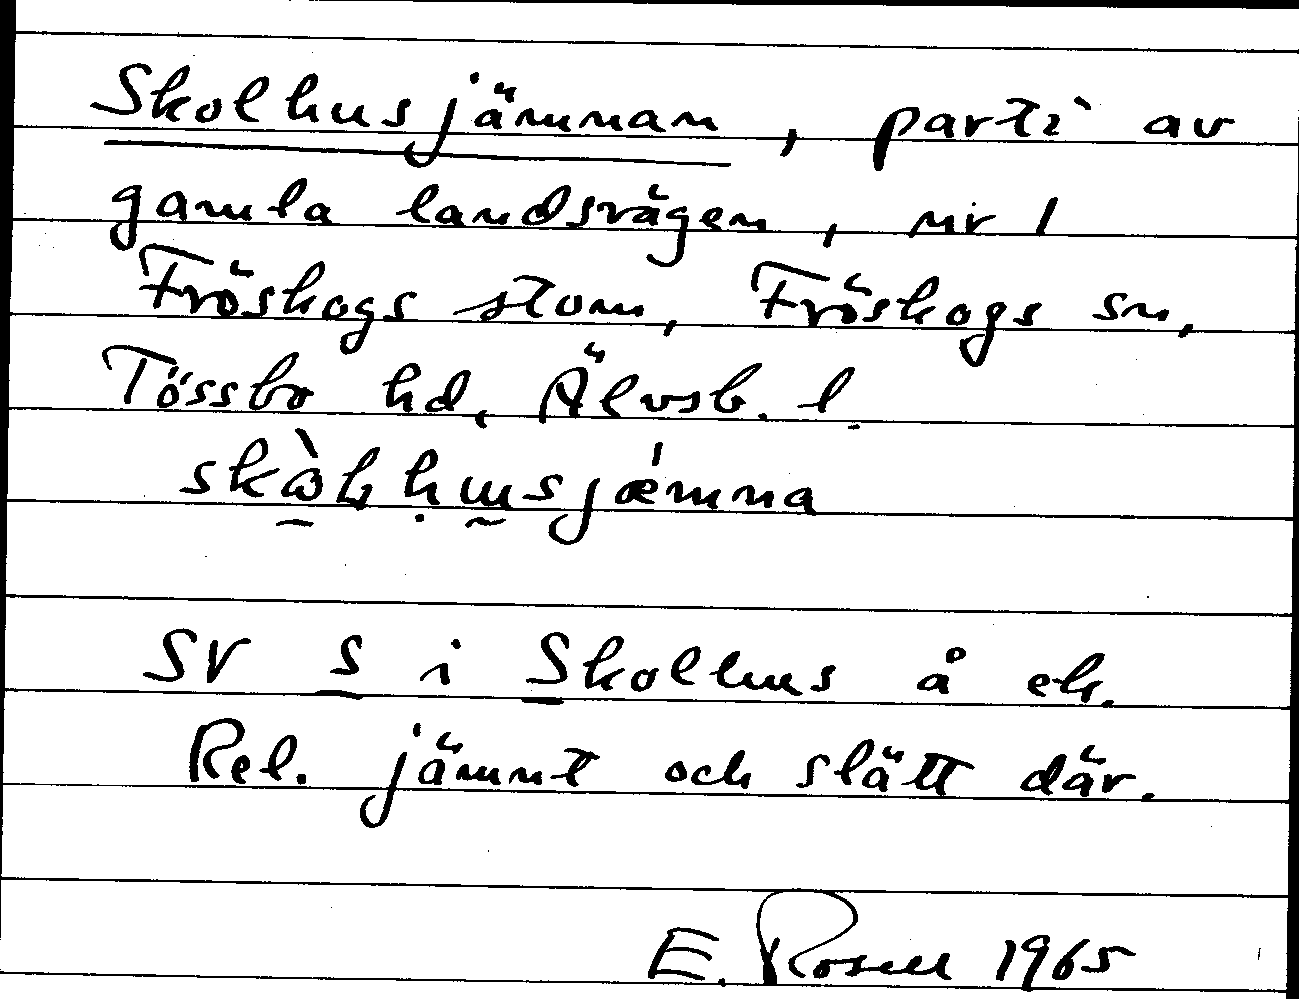 Skolhusjämnan, parti av
gamla landsvägen, nr 1
Fröskogs stom, Fröskogs sn,
Tössbo hd, Älvsb. l.
SV S i Skolhus å ek.
Rel. jämnt och slätt där.
E. Rosell 1965